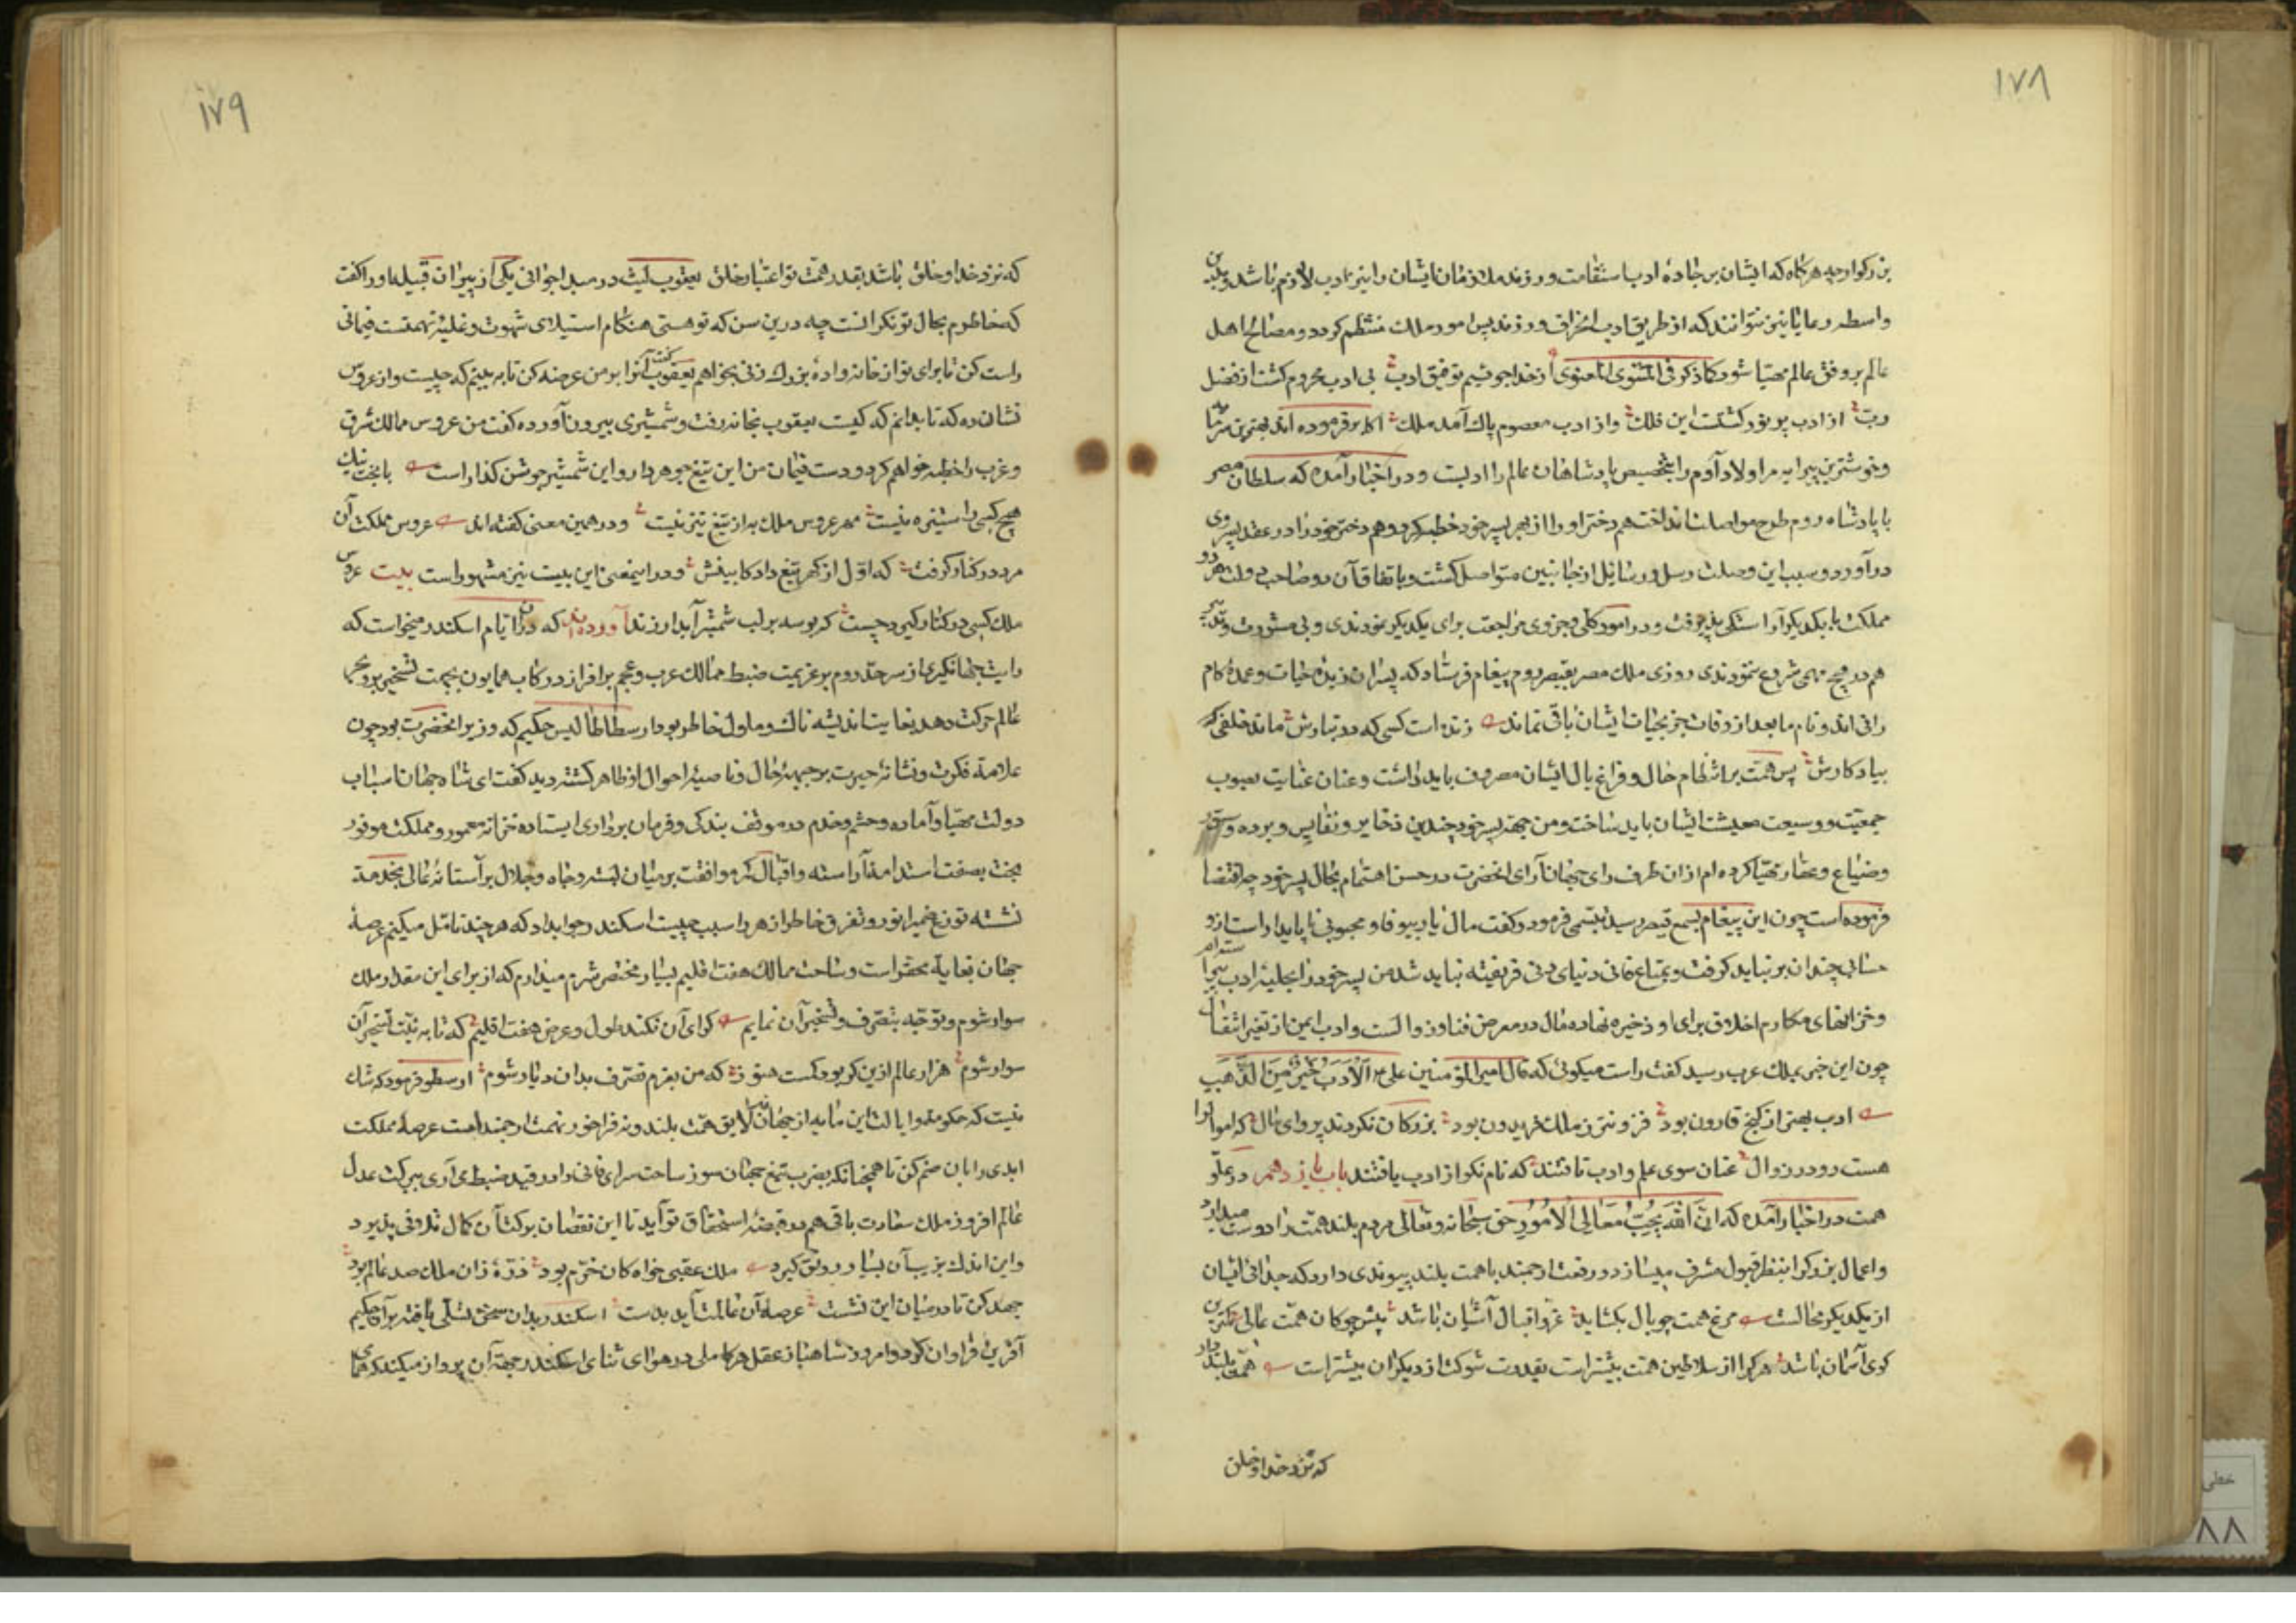 ۱۷۸
بزرگوار چه هرگاه که ایشان بر جادهٔ ادب استقامت ورزند ملازمان ایشان را نیز ادب لازم باشد و بدین
واسطه رعایا نیز نتوانند که از طریق ادب انحراف ورزند پس امور ملک منتظم گردد و مصالح اهل
عالم بر وفق عالم مهیا شود کما ذکر فی المثنوی المعنوی از خدا جوئیم توفیق ادب بی ادب محروم گشت از فضل
رب از ادب پر نور گشتست این فلک وز ادب معصوم پاک آمد ملک اکابر فرموده اند بهترین
و خوشترین پیرایه مر اولاد آدم را بتخصیص پادشاهان عالم را ادبست و در اخبار آمده که سلطان مصر
با پادشاه روم طرح مواصلت انداخت هم دختر او را از بهر پسر خود خطبه کرد و هم دختر خود را در عقد پسر وی
در آورد و بسبب این وصلت رسل و رسایل از جانبین متواصل گشت و باتفاق آن دو صاحب دولت هر دو
مملکت با یکدیگر آراستگی پذیرفت و در امور کلی و جزوی مراجعت برای یکدیگر نمودندی و بی مشورت و تدبیر
هم در هیچ مهمی شروع ننمودندی روزی ملک مصر بقیصر روم پیغام فرستاد که پسران زبدهٔ حیات و عمدهٔ کام
رانی اند و نام ما بعد از وفات جز بحیات ایشان باقی نماند زنده است کسی که در تبارش ماند خلفی
بیادگارش پس همت بر انتظام حال و فراغ بال ایشان مصروف باید داشت و عنان عنایت بصوب
جمعیت و وسعت معیشت ایشان باید ساخت و من جهة پسر خود چندین ذخایر و نفایس و برده و ستور
و ضیاع و عقار مهیا کرده ام از ان طرف رای جهان آرای انحضرت در حسن اهتمام بحال پسر خود چه اقتضا
فرموده است چون این پیغام بسمع قیصر رسید تبسمی فرمود و گفت مال یار بیوفا و محبوبی ناپایدار است ازو
حسابی چندان بر نباید گرفت و بمتاع فانی دنیای دنی فریفته نباید شد من پسر خود را بحلیهٔ ادب
و خزانهای مکارم اخلاق برای او ذخیره نهاده مال در معرض فنا و زوالست و ادب ایمن از تغیر و انتقال
چون این خبر بملک عرب رسید گفت راست میگوئی که قال امیر المؤمنین علی ع الْاَدَبُ خَیْرٌ مِنَ الذَّهَبِ
ادب بهتر از گنج قارون بود فزونتر ز ملک فریدون بود بزرگان نکردند پروای مال که اموال را
هست رو در زوال عنان سوی علم و ادب تافتند که نام نکو از ادب یافتند باب یازدهم در علو
همت در اخبار آمده که انّ اللّهَ یُحِبُّ مَعَالِیَ الْاُمُورِ حق سبحانه و تعالی مردم بلند همت را دوست میدارد
و اعمال بزرگ را بنظر قبول مشرف میسازد و رفعت ارجمند با همت بلند پیوندی دارد که جدائی ایشان
از یکدیگر محالست مرغ همت چو بال بکشاید غرو اقبال آشیان باشد پیش چوگان همت عالی کمترین
گوی آسمان باشد هر کرا از سلاطین همت بیشتر است بقدرت شوکت از دیگران بیشتر است همت بلند دار
که نزد خدا و خلق
۱۷۹
که نزد خدا و خلق باشد بقدر همت تو اعتبار خلق یعقوب لیث در مبدا جوانی یکی از پیران قبیله او را گفت
که خاطرم بحال تو نگرانست چه درین سن که تو هستی هنگام استیلای شهوت و غلبهٔ نهمتست فیمانی
راست کن تا برای تو از خانواده بزرگ زنی بخواهم یعقوب گفت آنرا بر من عرضه کن تا به بینم که چیست و از عروس
نشان ده که تا بدانم که کیست یعقوب بخانه رفت و شمشیری بیرون آورده گفت من عروس ممالک شرق
و غرب را خطبه خواهم کرد و دست فیمان من این تیغ جوهردار و این شمشیر جوشن گذار است با بخت نیک
هیچ کسی را ستیزه نیست مهر عروس ملک به از تیغ تیز نیست و در همین معنی گفته اند عروس مملکت آن
مرد در کنار گرفت که اول از گهر تیغ داد کابینش و در اینمعنی این بیت نیز مشهور است بیت عروس
ملک کسی در کنار گیرد چست که بوسه بر لب شمشیر آبدار زند آورده اند که در آن ایام اسکندر میخواست که
رایت جهانگیری از سر حد روم بر عزیمت ضبط ممالک عرب و عجم برافرازد و رکاب همایون بجهت تسخیر بر و بحر
عالم حرکت دهد بغایت اندیشه ناک و ملول خاطر بود ارسطاطالیس حکیم که وزیر انحضرت بود چون
علامت فکرت و نشانهٔ حیرت بر جبههٔ حال و ناصیهٔ احوال او ظاهر گشته دید گفت ای شاه جهان اسباب
دولت مهیا و آماده و حشم و خدم در موقف بندگی و فرمان برداری ایستاده خزانه معمور و مملکت موفور
بخت بصفت استدامت آراسته و اقبال کمر موافقت بر میان بسته و جاه و جلال بر آستانهٔ عالی بخدمت
نشسته توزع ضمیر انور و تفرق خاطر ازهر را سبب چیست اسکندر جواب داد که هر چند تامل میکنم عرصهٔ
جهان بغایة محقر است و ساحت ممالک هفت اقلیم بسیار مختصر شرم میدارم که از برای این مقدار ملک
سوار شوم و توجه بتصرف و تسخیر آن نمایم کرای آن نکند طول و عرض هفت اقلیم که تا به نیت تسخیر آن
سوار شوم هزار عالم ازین گر بود کمست هنوز که من بعزم تصرف بدان دیار شوم ارسطو فرمود که شک
نیست که حکومت و ایالت این مایه از جهان نه لایق همت بلند و نه فراخور نهمت ارجمند است عرصهٔ مملکت
ابدی را با آن ضم کن تا همچنانکه بضرب تیغ جهان سوز ساحت سرای فانی را در قید ضبط می آری ببرکت عدل
عالم افروز ملک سعادت باقی هم در قبضهٔ استحقاق تو آید تا این نقصان ببرکت آن کمال تلافی پذیرد
و این اندک بزیب آن بسیار رونق گیرد ملک عقبی خواه کان خرم بود ذرهٔ زان ملک صد عالم بود
جهد کن تا در میان این نشست عرصهٔ آن عالمت آید بدست اسکندر بدان سخن تسلی یافته بر آن حکیم
آفرین فراوان کرد و امروز شاهباز عقل هر کاملی در هوای ثنای اسکندر بجهة آن پرواز میکند که همای
خطی
۸۸